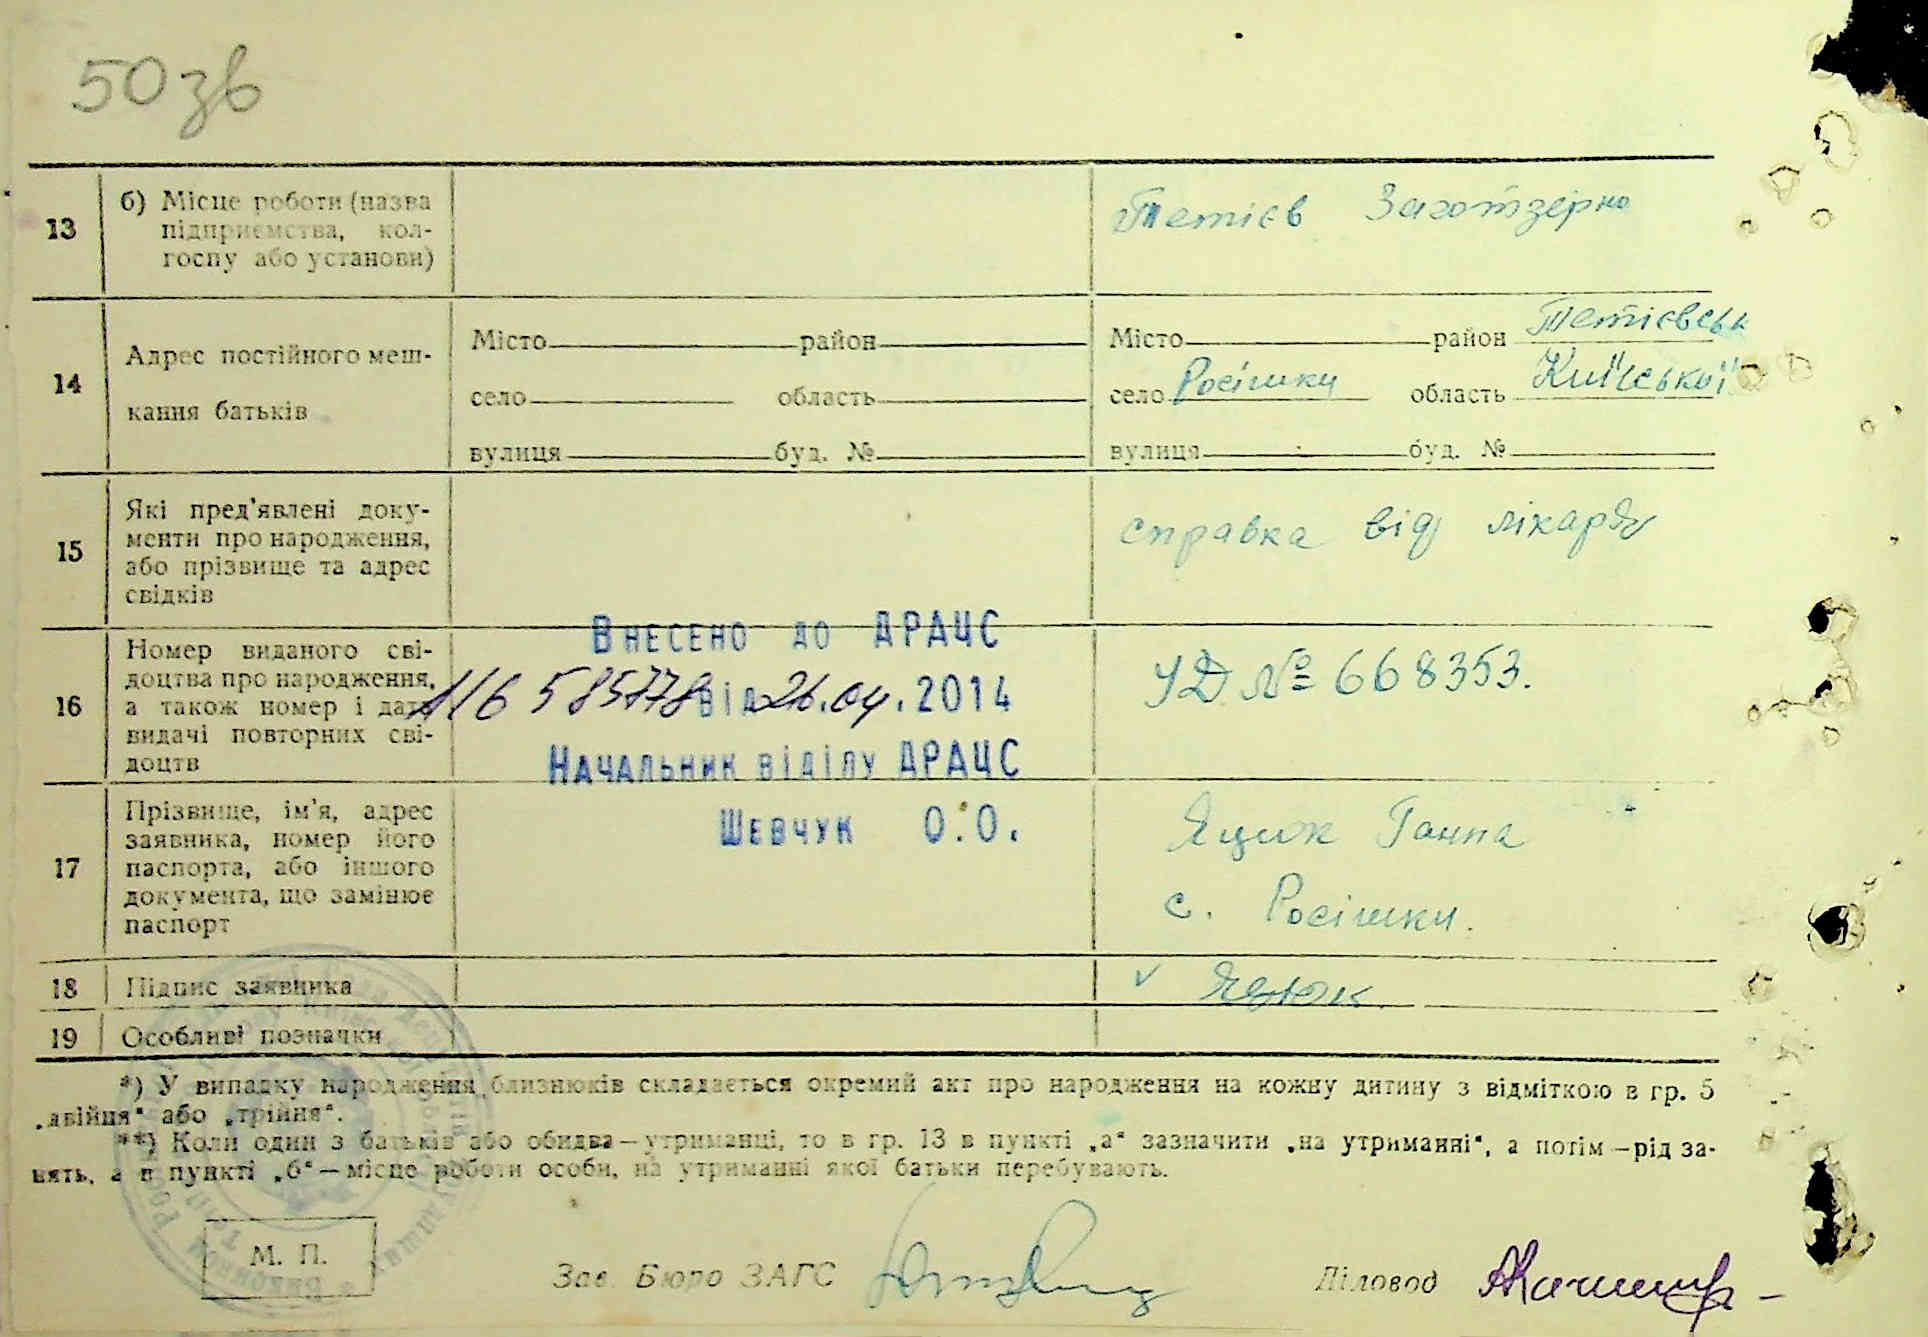 50 зв
13
б) Місце роботи (назва
підприємства, кол-
госпу або установи)
Тетієв Заготзерно
14
Адрес постійного меш-
кання батьків
Місто район
село область
вулиця буд. №
Місто район Тетієвськ
село Росішки область Київської
вулиця буд. №
15
Які пред'явлені доку-
менти про народження,
або прізвище та адрес
свідків
справка від лікаря
16
Номер виданого сві-
доцтва про народження,
а також номер і дата
видачі повторних сві-
доцтв
Внесено до ДРАЦС
116 585778 від 26.04.2014
Начальник відділу ДРАЦС
Шевчук О.О.
УД № 668353.
17
Прізвище, ім'я, адрес
заявника, номер його
паспорта, або іншого
документа, що замінює
паспорт
Яцик Ганна
с. Росішки.
18
Підпис заявника
19
Особливі позначки
*) У випадку народження близнюків складається окремий акт про народження на кожну дитину з відміткою в гр. 5
„двійня“ або „трійня“.
**) Коли один з батьків або обидва—утриманці, то в гр. 13 в пункті „а“ зазначити „на утриманні“, а потім—рід за-
нять, а в пункті „б“—місце роботи особи, на утриманні якої батьки перебувають.
М. П.
Зав. Бюро ЗАГС
Діловод